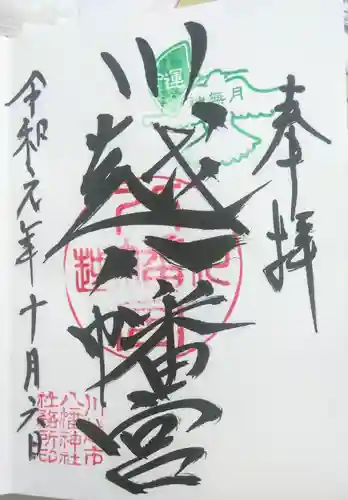 奉拝
川越八幡宮
令和元年十月六日
神無月
開運
川越市
八幡神社
社務所印